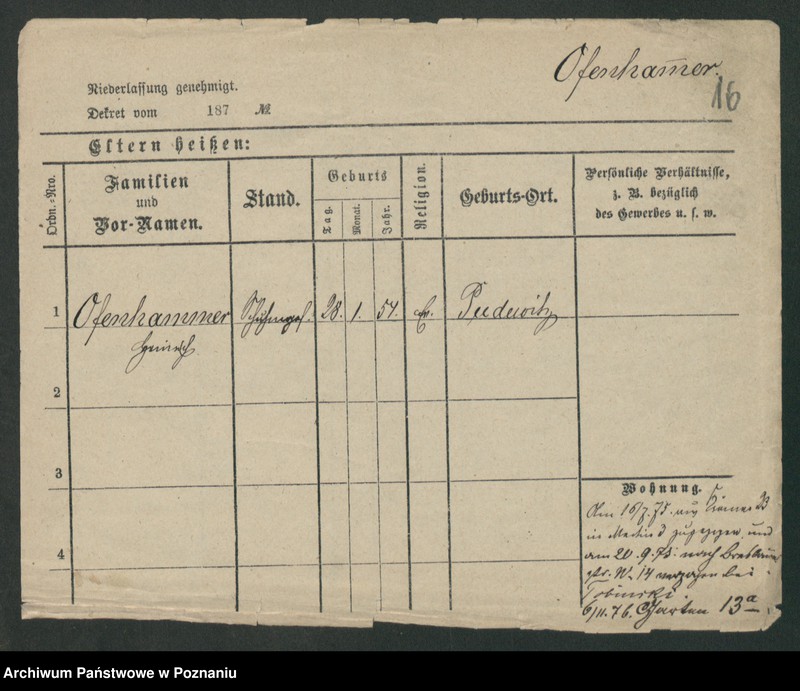 Ofenham̅er.
16
Niederlassung genehmigt.
Dekret vom 187 №
Eltern heißen:
Ordn.-Nro.
Familien
und
Vor-Namen.
Stand.
Geburts
Tag.
Monat.
Jahr.
Religion.
Geburts-Ort.
Persönliche Verhältnisse,
z. B. bezüglich
des Gewerbes u. s. w.
1 Ofenhammer Schuhmges. 28. 1. 54. Ev. Pudewitz
Heinrich
2
3
4
Wohnung.
Am 16/7. 75.
in zugezogen und
am 20. 9. 75. nach
str. No 14 verzogen bei
6/11. 76. Garten 13a
Archiwum Państwowe w Poznaniu